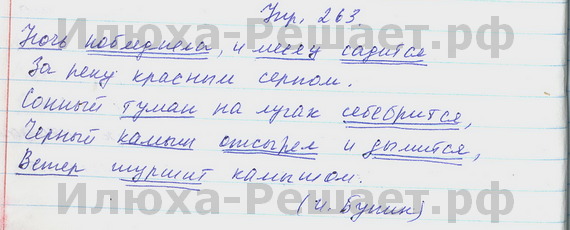 Упр. 263.
Ночь побледнела, и месяц садится
За реку красным серпом.
Сонный туман на лугах себебрится,
Черный камыш отсырел и дымится,
Ветер шуршит камышом.
(И. Бунин)
Илюха-Решает.рф
Илюха-Решает.рф
Илюха-Решает.рф